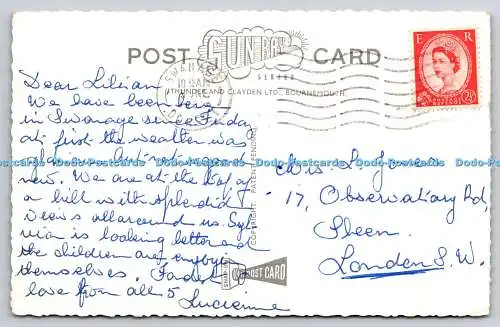 POST CARD
SUNRAY
SERIES
THUNDER AND CLAYDEN LTD., BOURNEMOUTH
SWANAGE
E R
2½D
Dear Lilian
We have been here
in Swanage since Friday
at first the weather was
now. We are at the top of
a hill with splendid
views all around us. Syl-
via is looking better and
the children are enjoying
themselves.
love from all 5
Lucienne
Mrs. L. Jones
17, Observatory Rd,
Sheen
London S.W.
COPYRIGHT
POST CARD
Dodo-Postcards Dodo-Postcards Dodo-Postcards Dodo-Postcards Dodo-Postcards